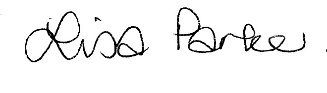 Lisa Parker